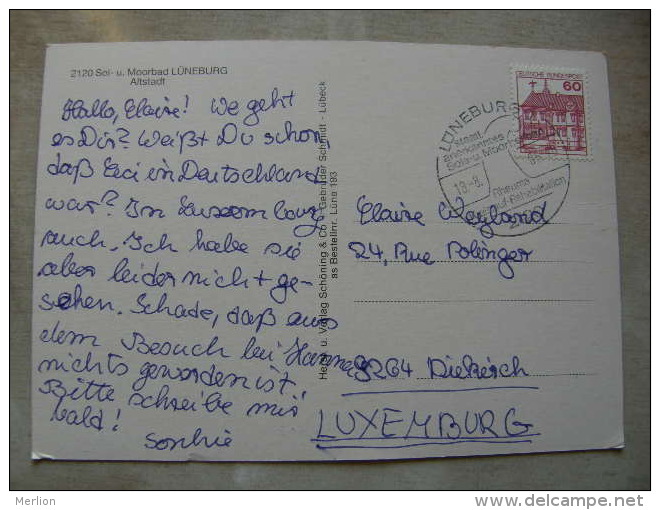 2120 Sol- u. Moorbad LÜNEBURG
Altstadt
Hallo, Claire! We geht
es Dir? Weißt Du schon
daß in Deutschland
war? In Luxemburg
auch. Ich habe sie
aber leider nicht ge-
sehen. Schade, daß aus
dem Besuch bei
nichts geworden ist.
Bitte schreibe mir
bald!
Sophie
Verlag Schöning & Co + Gebrüder Schmidt - Lübeck
as Bestellnr. Lüne 193
DEUTSCHE BUNDESPOST
60
LÜNEBURG
staatl.
anerkanntes
Sole-u. Moor
Rheuma
Rehabilitation
Claire
24, Rue
9264 Diekirch
LUXEMBURG
Merlion
www.delcampe.net